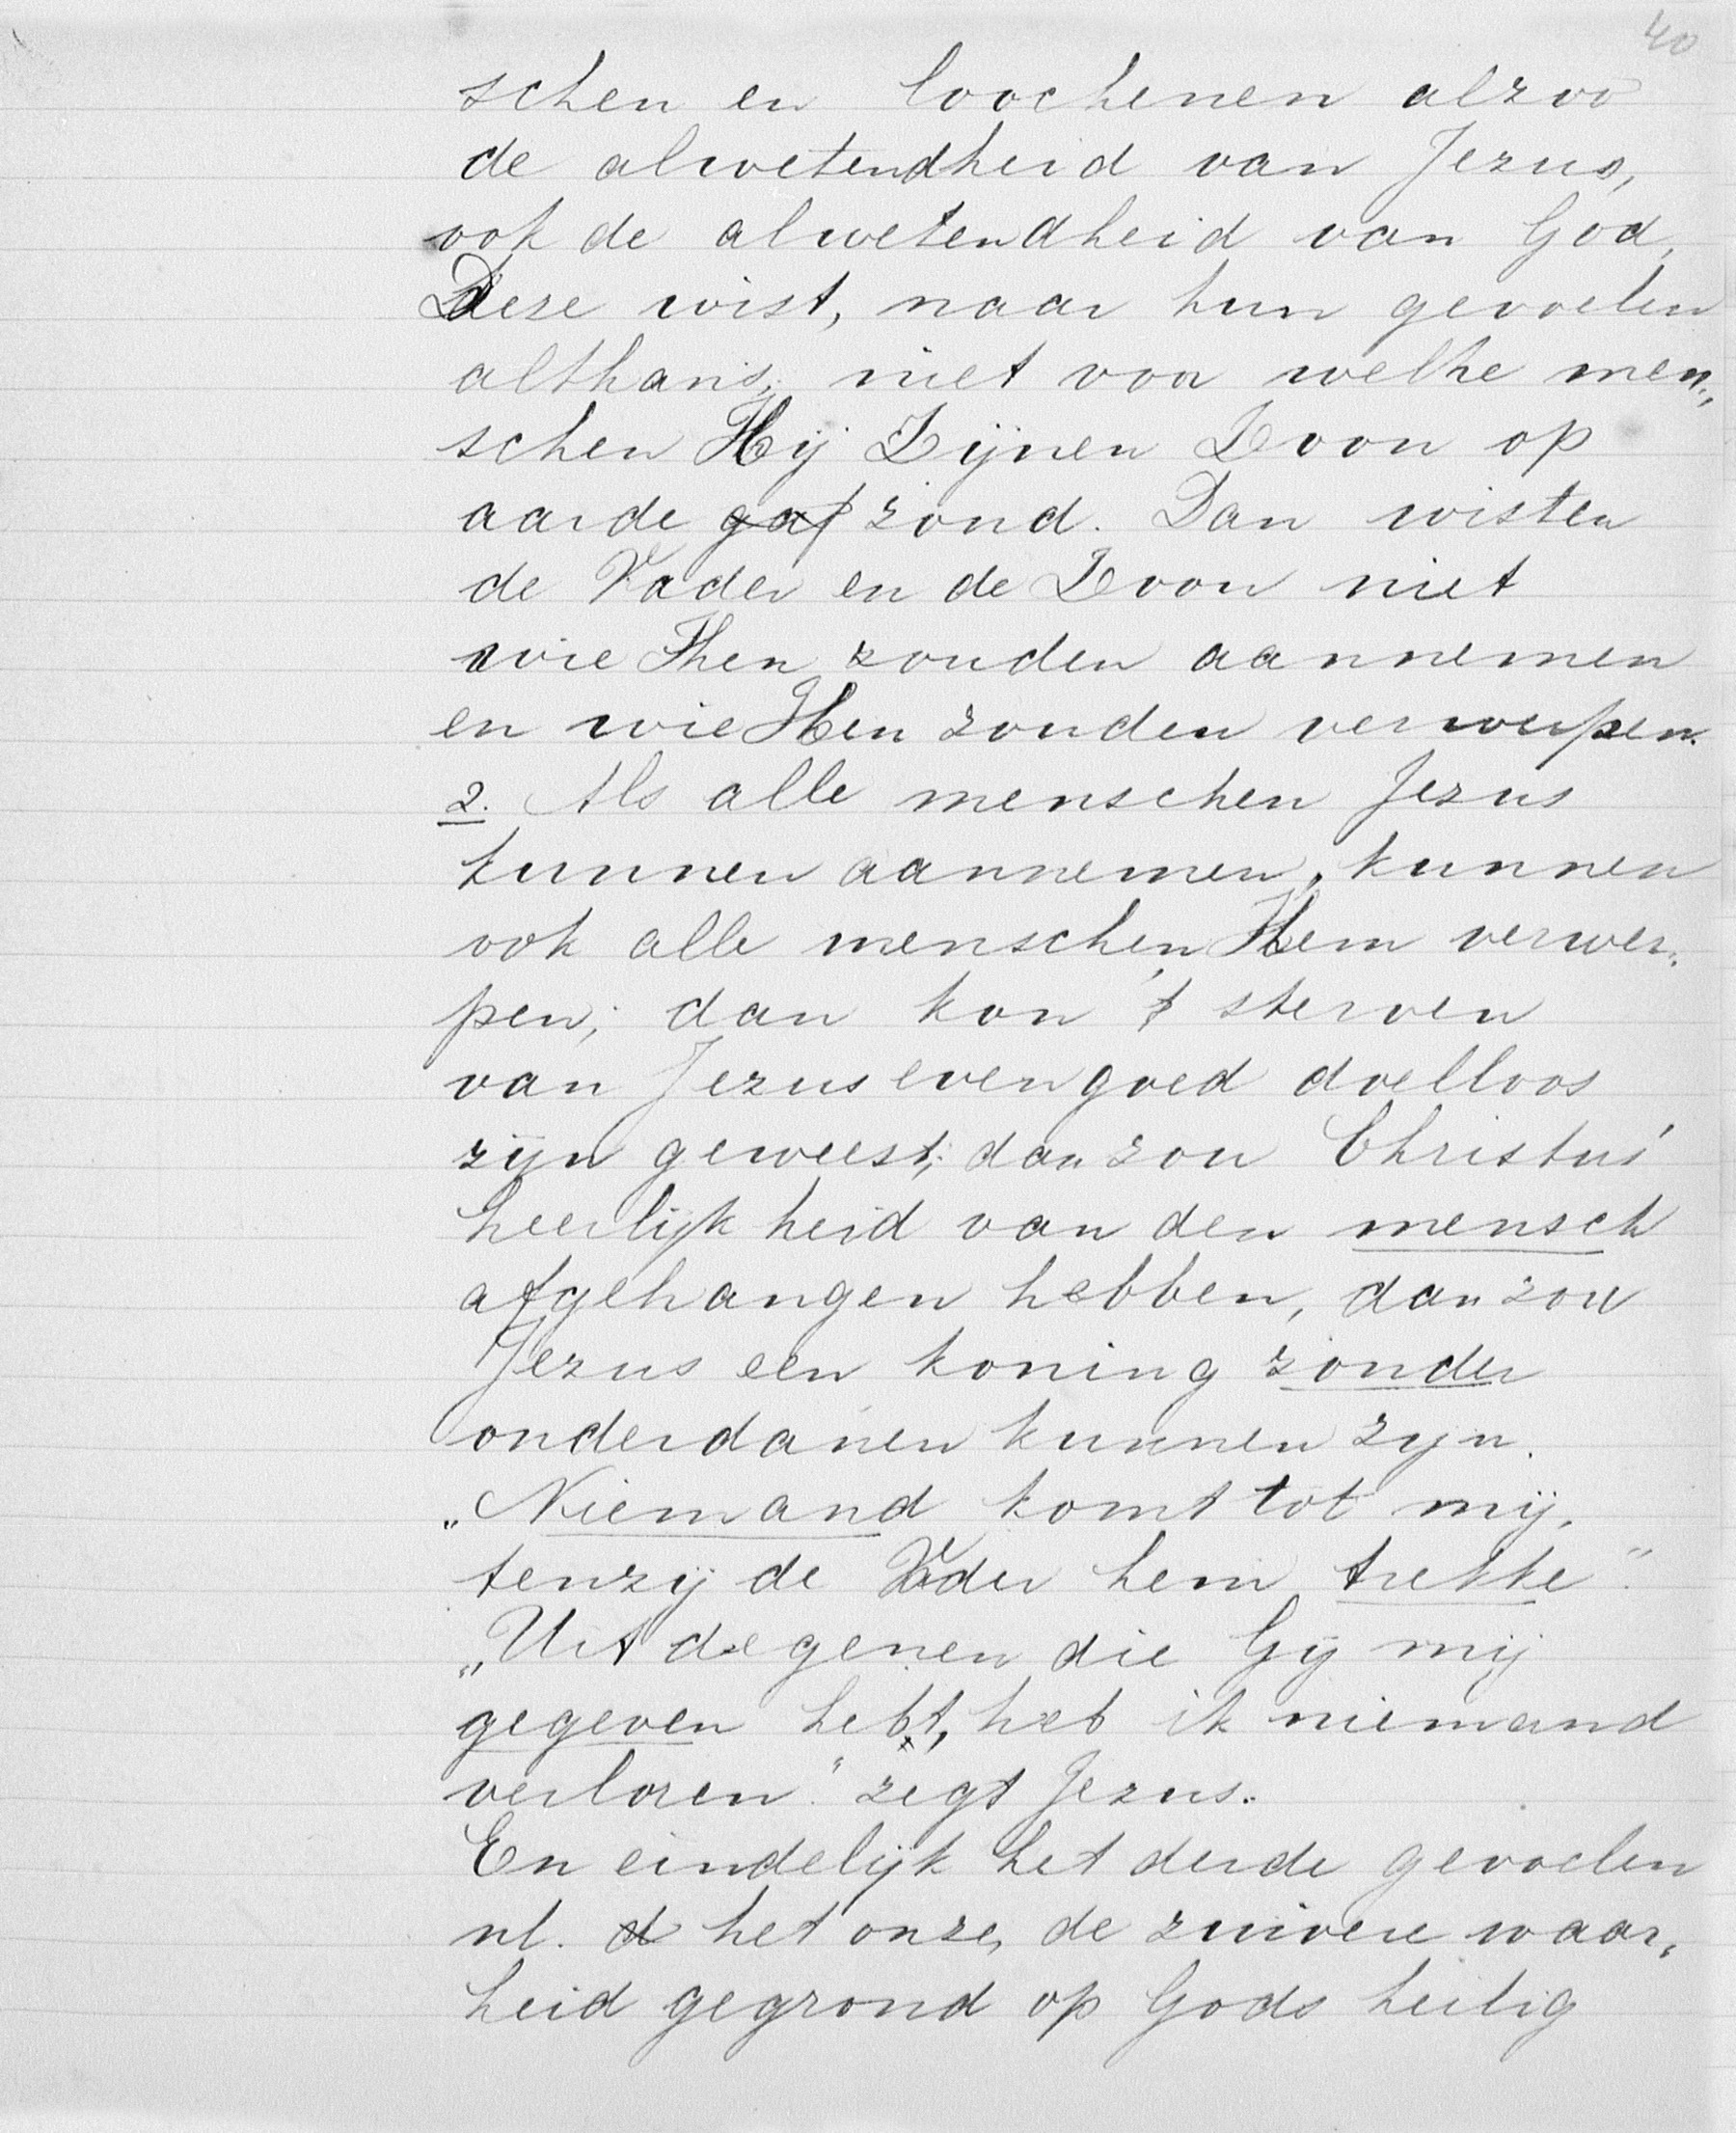 40
schen en loochenen alzoo
de alwetendheid van Jezus,
ook de alwetendheid van God,
Deze wist, naar hun gevoelen
althans, niet voor welke men„
schen Hij Zijnen Zoon op
aarde gaf zond. Dan wisten
de Vader en de Zoon niet
wie Hen zouden aannemen
en wie Hen zouden verwerpen.
2. Als alle menschen Jezus
kunnen aannemen, kunnen
ook alle menschen Hem verwer„
pen; dan kon 't sterven
van Jezus evengoed doelloos
zijn geweest; dan zou Christus'
heerlijkheid van den mensch
afgehangen hebben, dan zou
Jezus een koning zonder
onderdanen kunnen zijn.
„Niemand komt tot mij,
tenzij de Vader hem trekke".
„Uit degenen die Gij mij
gegeven hebt, heb ik niemand
verloren." zegt Jezus.
En eindelijk het derde gevoelen
nl. d het onze, de zuivere waar„
heid gegrond op Gods heilig